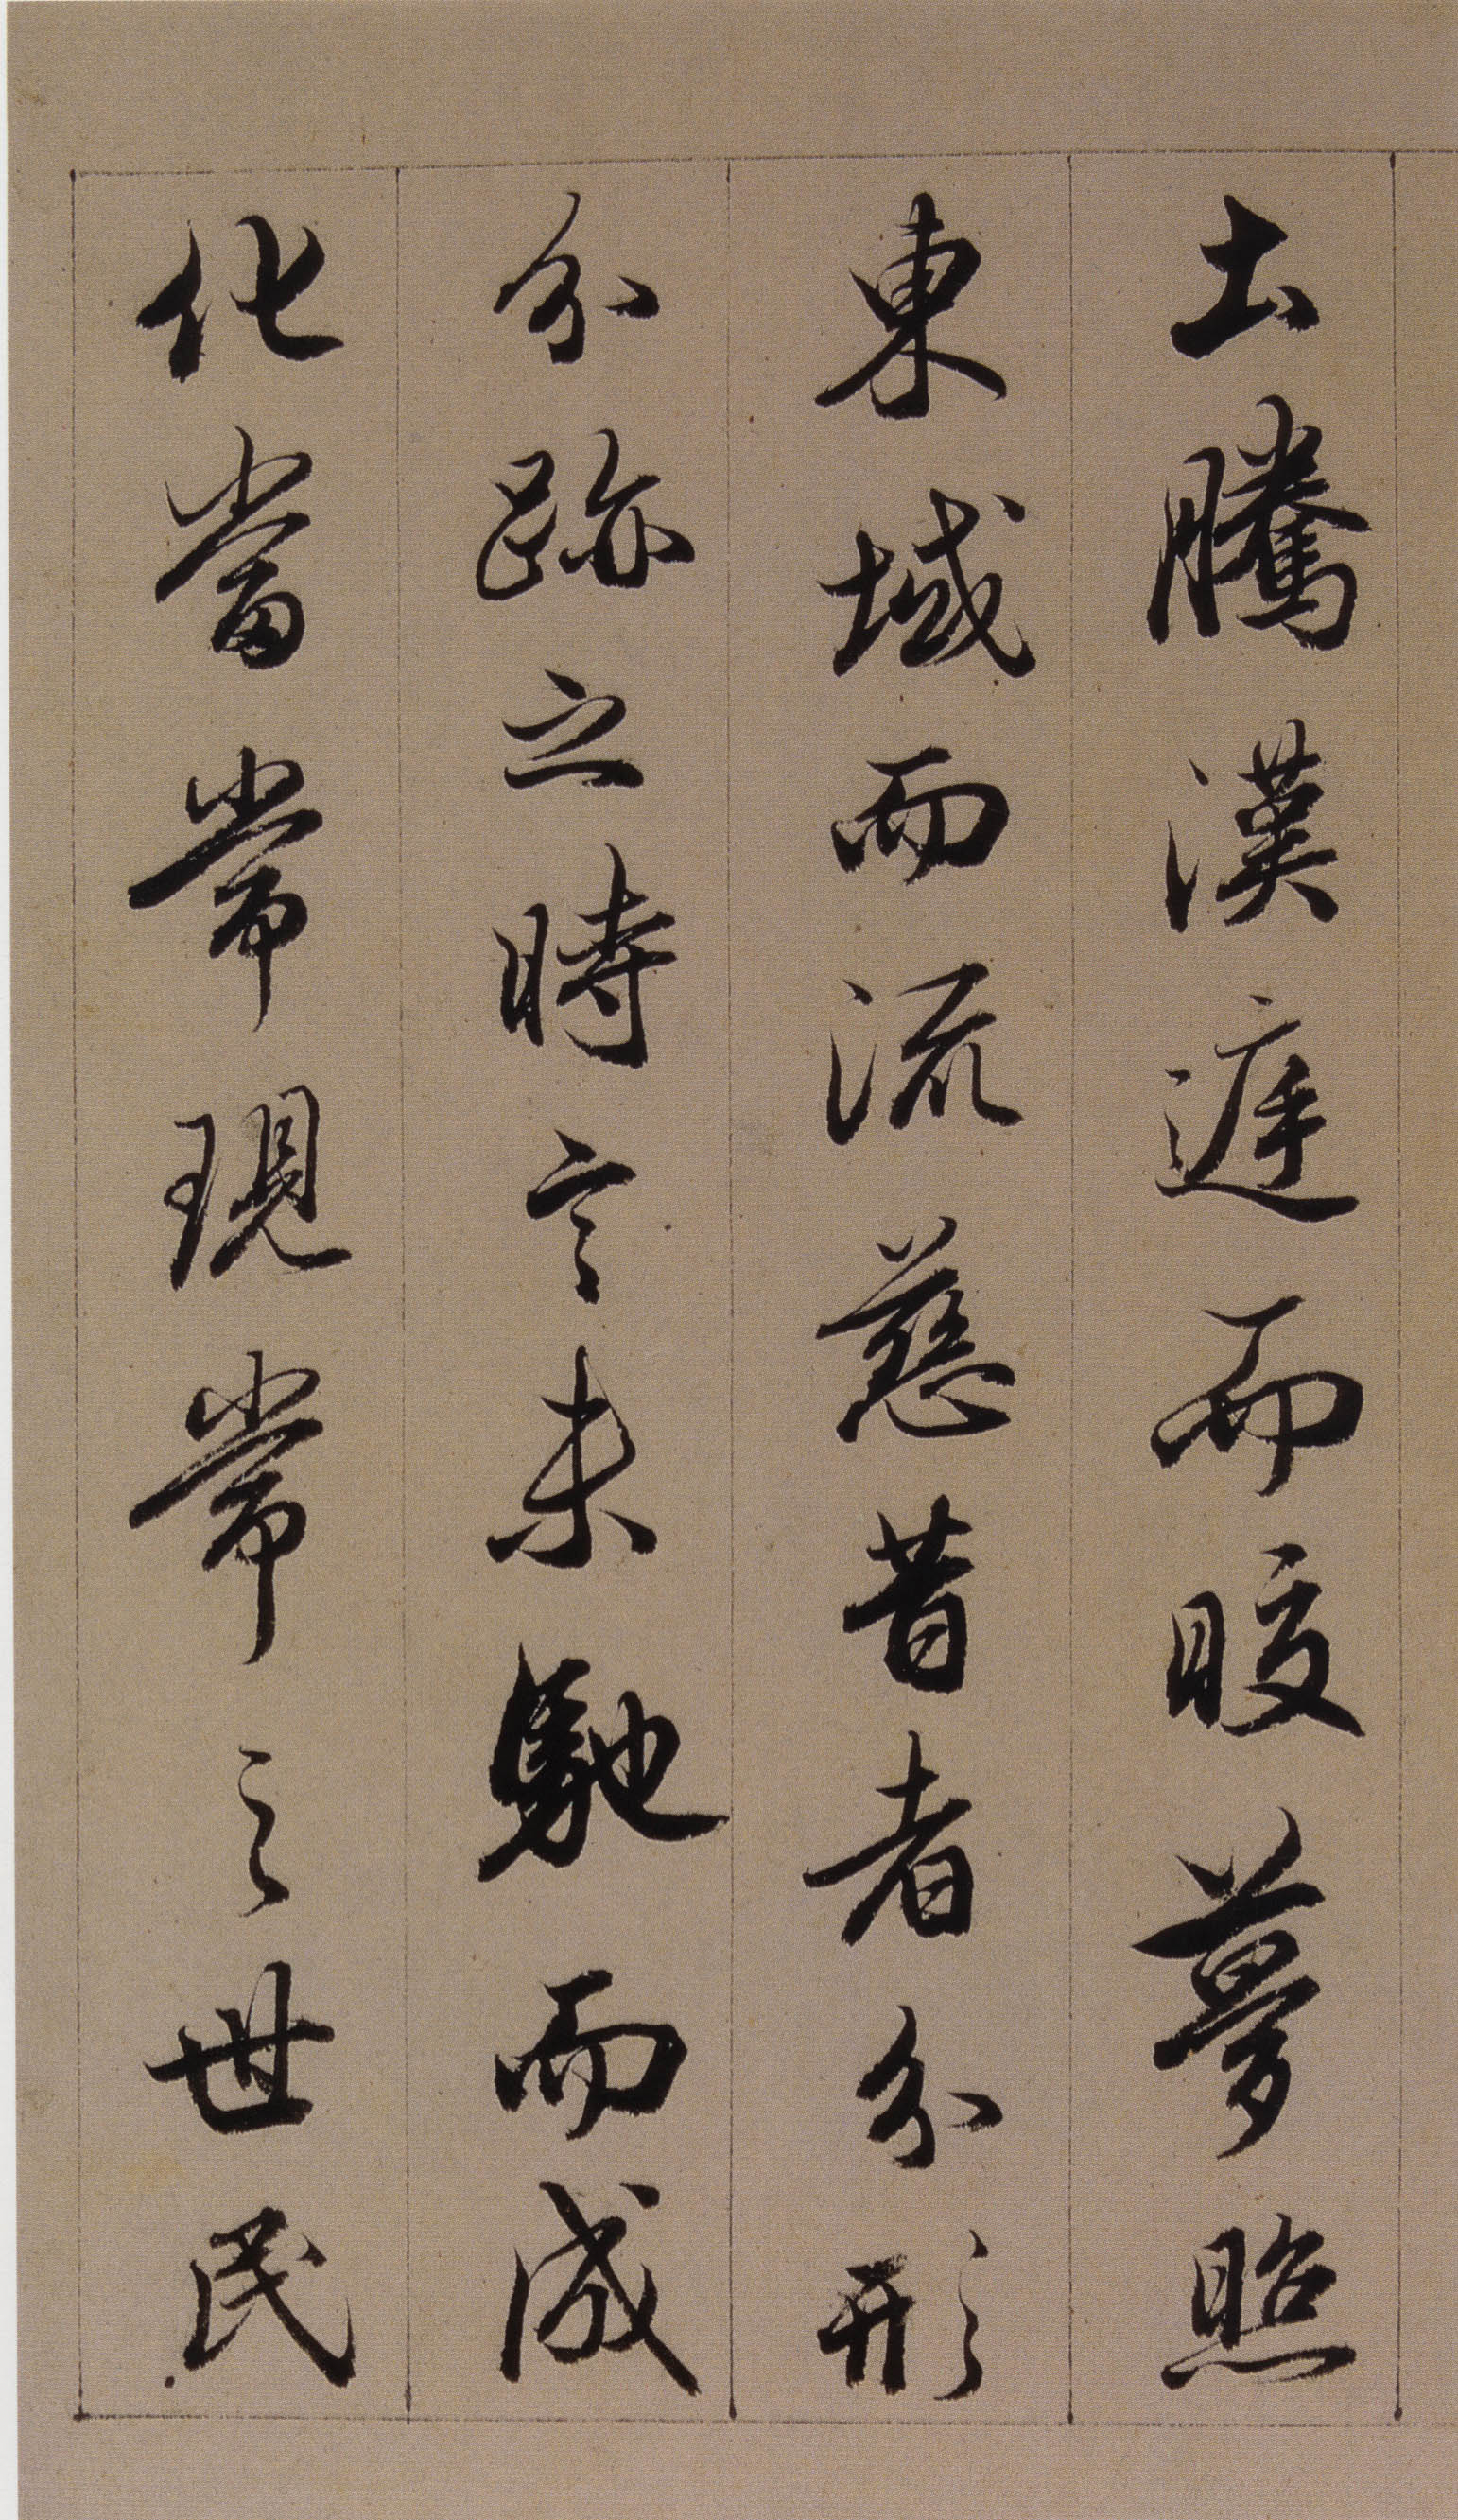 土騰漢庭而晈夢照
東域而流慈昔者分形
分跡之時言未馳而成
化當常現常之世民